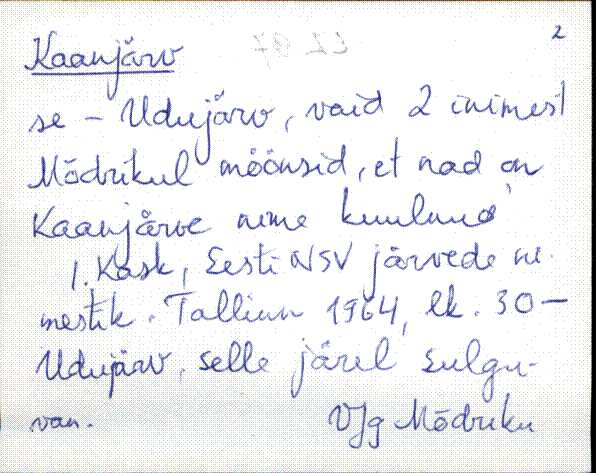 2
Kaanjärv
se - Udujärv, vaid 2 inimest
Mõdrikul möönsid, et nad on
Kaanjärve nime kuulnud
I. Kask, Eesti NSV järvede ni-
mestik. Tallinn 1964, lk. 30 —
Udujärv, selle järel sulgu-
van.
VJg Mõdriku